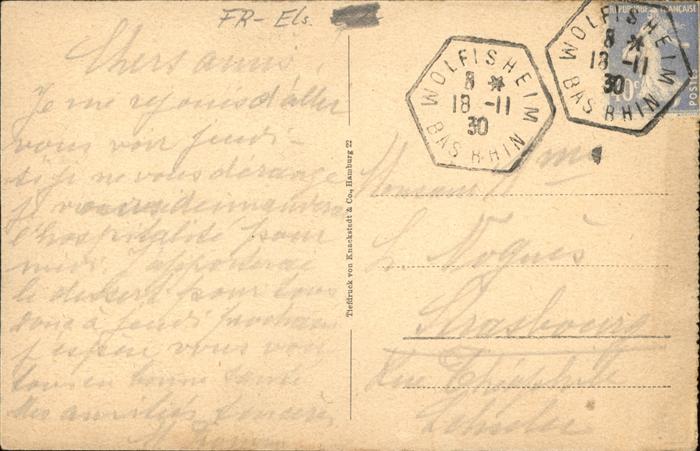 FR-Els.
Chers amis,
Je me rejouis d'aller
vous voir jeudi-
si je ne vous derange
je vous demandera
l'hospitalité pour
midi J'apporterai
le dessert pour tous
donc à jeudi prochain
J'espère vous voir
tous en bonne santé
Mes amitiés sincères
M.
Tiefdruck von Knackstedt & Co., Hamburg 22
WOLFISHEIM
8 *
18 -11
30
BAS RHIN
WOLFISHEIM
8 *
18 -11
30
BAS RHIN
FRANÇAISE
POSTES
Monsieur Mme
L. Noguès
Strasbourg
Rue Théophile
Schuler